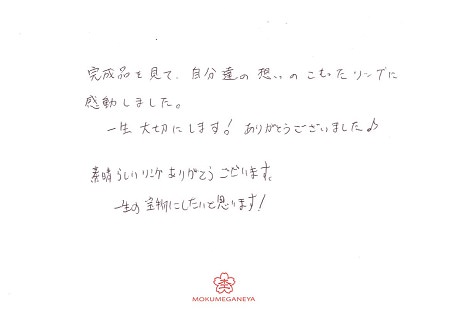 完成品を見て、自分達の想いのこもったリングに
感動しました。
一生大切にします！ありがとうございました♪
素晴らしいリングありがとうございます。
一生の宝物にしたいと思います！
MOKUMEGANEYA